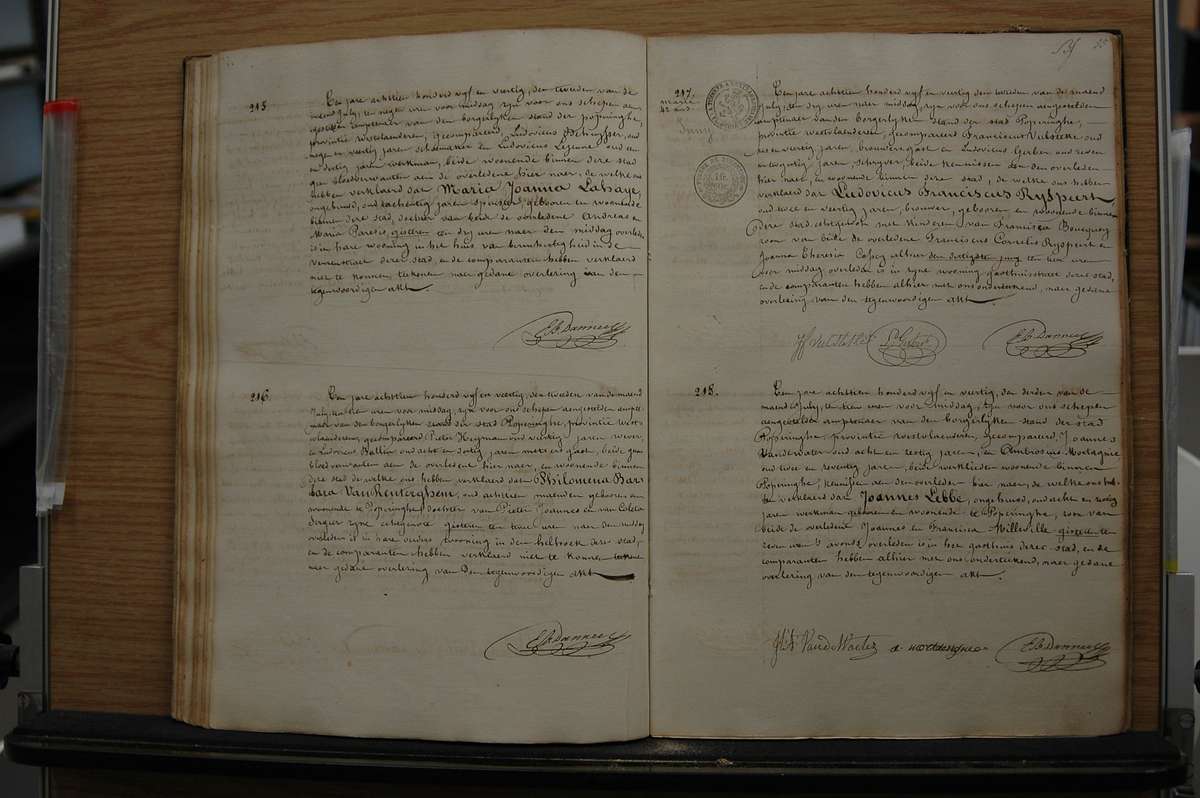 215
Een jare achttien honderd vyf en veertig, den tweeden van de
maend July, ten negen uren voor middag, zyn voor ons schepen aen
gestelden amptenaer van den borgerlyken stand der stad Poperinghe,
provintie westvlaenderen, gecompareerd, Ludovicus
negen en veertig jaren, schoenmaker en Ludovicus Lejeune oud een
en dertig jaren werkman, beide woonende binnen deze stad
aen de overledene hier naer, de welke ons
hebben verklaerd dat Maria Joanna Lahaye,
ongehuwd, oud tachentig jaren, geboren en woonende
binnen deze stad, dochter van beide de overledene Andreas en
Maria gisteren ten dry uren naer den middag overleden
is in hare wooning in het huis van in de
straet dezer stad, en de comparanten hebben verklaerd
niet te konnen teekenen naer gedane overlezing van den
tegenwoordigen akt
216
Een jare achttien honderd vyf en veertig, den tweeden van de maend
July, ten uren voor middag, zyn voor ons schepen aengestelden ampte
naer van den borgerlyken stand der stad Poperinghe, provintie West
vlaenderen, gecompareerd, Pieter oud veertig jaren wever,
en Ludovicus Battieu oud acht en dertig jaren metsers gast, beide geen
bloedverwanten aen de overledene hier naer, en woonende binnen
deze stad de welke ons hebben verklaerd dat Philomena Bar
bara Van Renterghem, oud achttien maenden geboren en
woonende te Poperinghe, dochter van Pieter Joannes en van Coleta
zyne echtgenote gisteren ten twee uren naer den middag
overleden is in hare ouders wooning in den helhoek deze stad,
en de comparanten hebben verklaerd niet te konnen
naer gedane overlezing van den tegenwoordigen akt
217.
Een jare achttien honderd vyf en veertig den tweeden van de maend
July, ten dry uren naer middag, zyn voor ons schepen aengestelden
amptenaer van den borgerlyken stand der stad Poperinghe,
provintie westvlaenderen, gecompareerd Franciscus oud
zes en veertig jaren, brouwers gast en Ludovicus Gerber oud zeven
en twintig jaren, schryver, beide kennissen van den overleden
hier naer, en woonende binnen deze stad, de welke ons hebben
verklaerd dat Ludovicus Franciscus Ryspeert
oud twee en veertig jaren, brouwer, geboren en woonende binnen
deze stad, echtgenoot met kinderen van Francisca Boucquey
zoon van beide de overledene Franciscus Cornelis Ryspeert en
Joanna Theresia alhier den dertigsten juny ten tien uren
voor middag overleden is in zyne wooning gasthuisstraete dezer stad,
en de comparanten hebben alhier met ons onderteekend, naer gedane
overlezing van den tegenwoordigen akt
218.
Een jare achttien honderd vyf en veertig, den derden van de
maend July, ten tien uren voor middag, zyn voor ons schepen
aengestelden amptenaer van den borgerlyken stand der stad
Poperinghe, provintie westvlaenderen, gecompareerd, Joannes
Vandewater oud acht en zestig jaren, en Ambrosius Mortagnie
oud twee en zeventig jaren, beide werklieden woonende binnen
Poperinghe, kennissen aen den overleden hier naer, de welke ons heb
ben verklaerd dat Joannes Lebbe, ongehuwd, oud acht en zestig
jaren werkman geboren en woonende te Poperinghe, zoon van
beide de overledene Joannes en Francisca Milleville gisteren te
zeven uren 's avonds overleden is in het gasthuis dezer stad, en de
comparanten hebben alhier met ons onderteekend, naer gedane
overlezing van den tegenwoordigen akt.